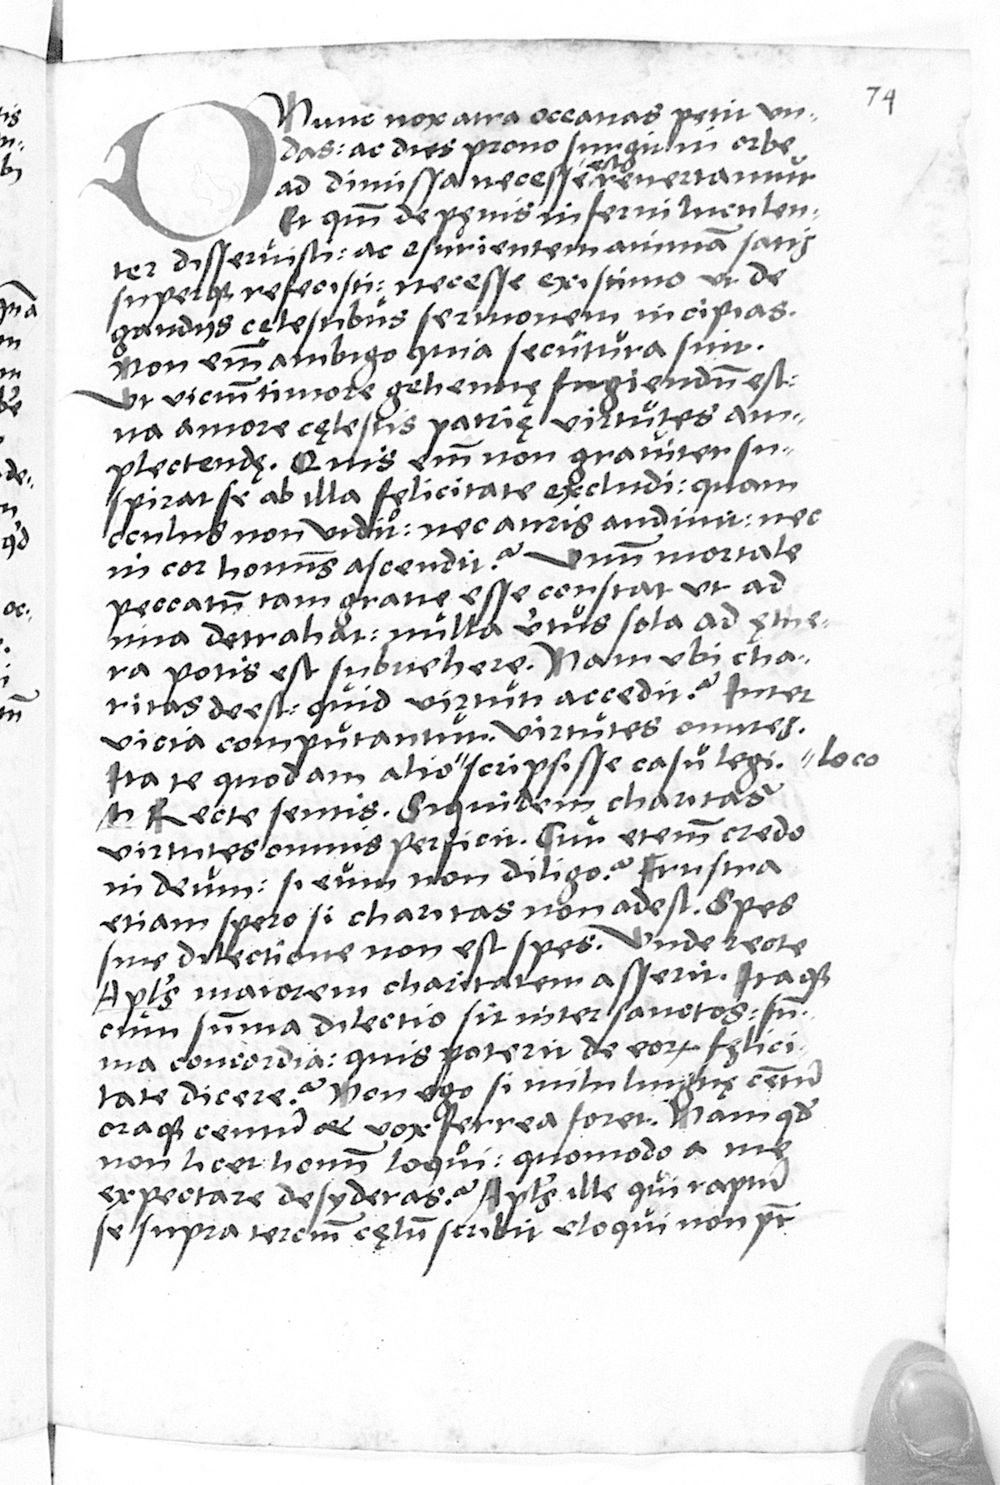 74
O Nunc nox atra occeanas petit vn-
das: ac dies prono surgit in orbe
ad dimissa necesse est reuertamur
Et qm̄ de pęnis inferni luculen-
ter disseruisti: ac esurientem animā satis
superq refecisti: necesse existimo vt de
gaudijs cęlestibus sermonem incipias.
Non em̄ ambigo quia secutura sint.
Vt viciū timore gehennę fugiendū est:
ita amore cęlestis patrię virtutes am-
plectendę. Quis em̄ non grauiter su-
spirat se ab illa fęlicitate excludi: quam
occulus non vidit: nec auris audiuit: nec
in cor homīs ascendit? Vnū mortale
peccatū tam graue esse constat vt ad
ima detrahat: nulla vtus sola ad ęthe-
ra potis est subuehere. Nam vbi cha-
ritas deest: quid virtuti accedit? Inter
vicia computantur virtutes omnes.
Ita te quodam alio " scripsisse casu legi. " loco
Recte sentis. Siquidem charitas
virtutes omnis perficit. Cur etem̄ credo
in deum: si eum non diligo? Frustra
etiam spero si charitas non adest. Spes
sine dilectione non est spes. Vnde recte
Apl's maiorem charitatem asserit. Itaq
cum sūma dilectio sit inter sanctos: sū-
ma concordia: quis poterit de eoꝝ fęlici-
tate dicere? Non ego si mihi linguę centū
oraq centū & vox ferrea foret. Nam qd
non licet homī loqui: quomodo a me
expectare desyderas? Apl's ille qui raptū
se supra terciū cęlū scribit eloqui non pt